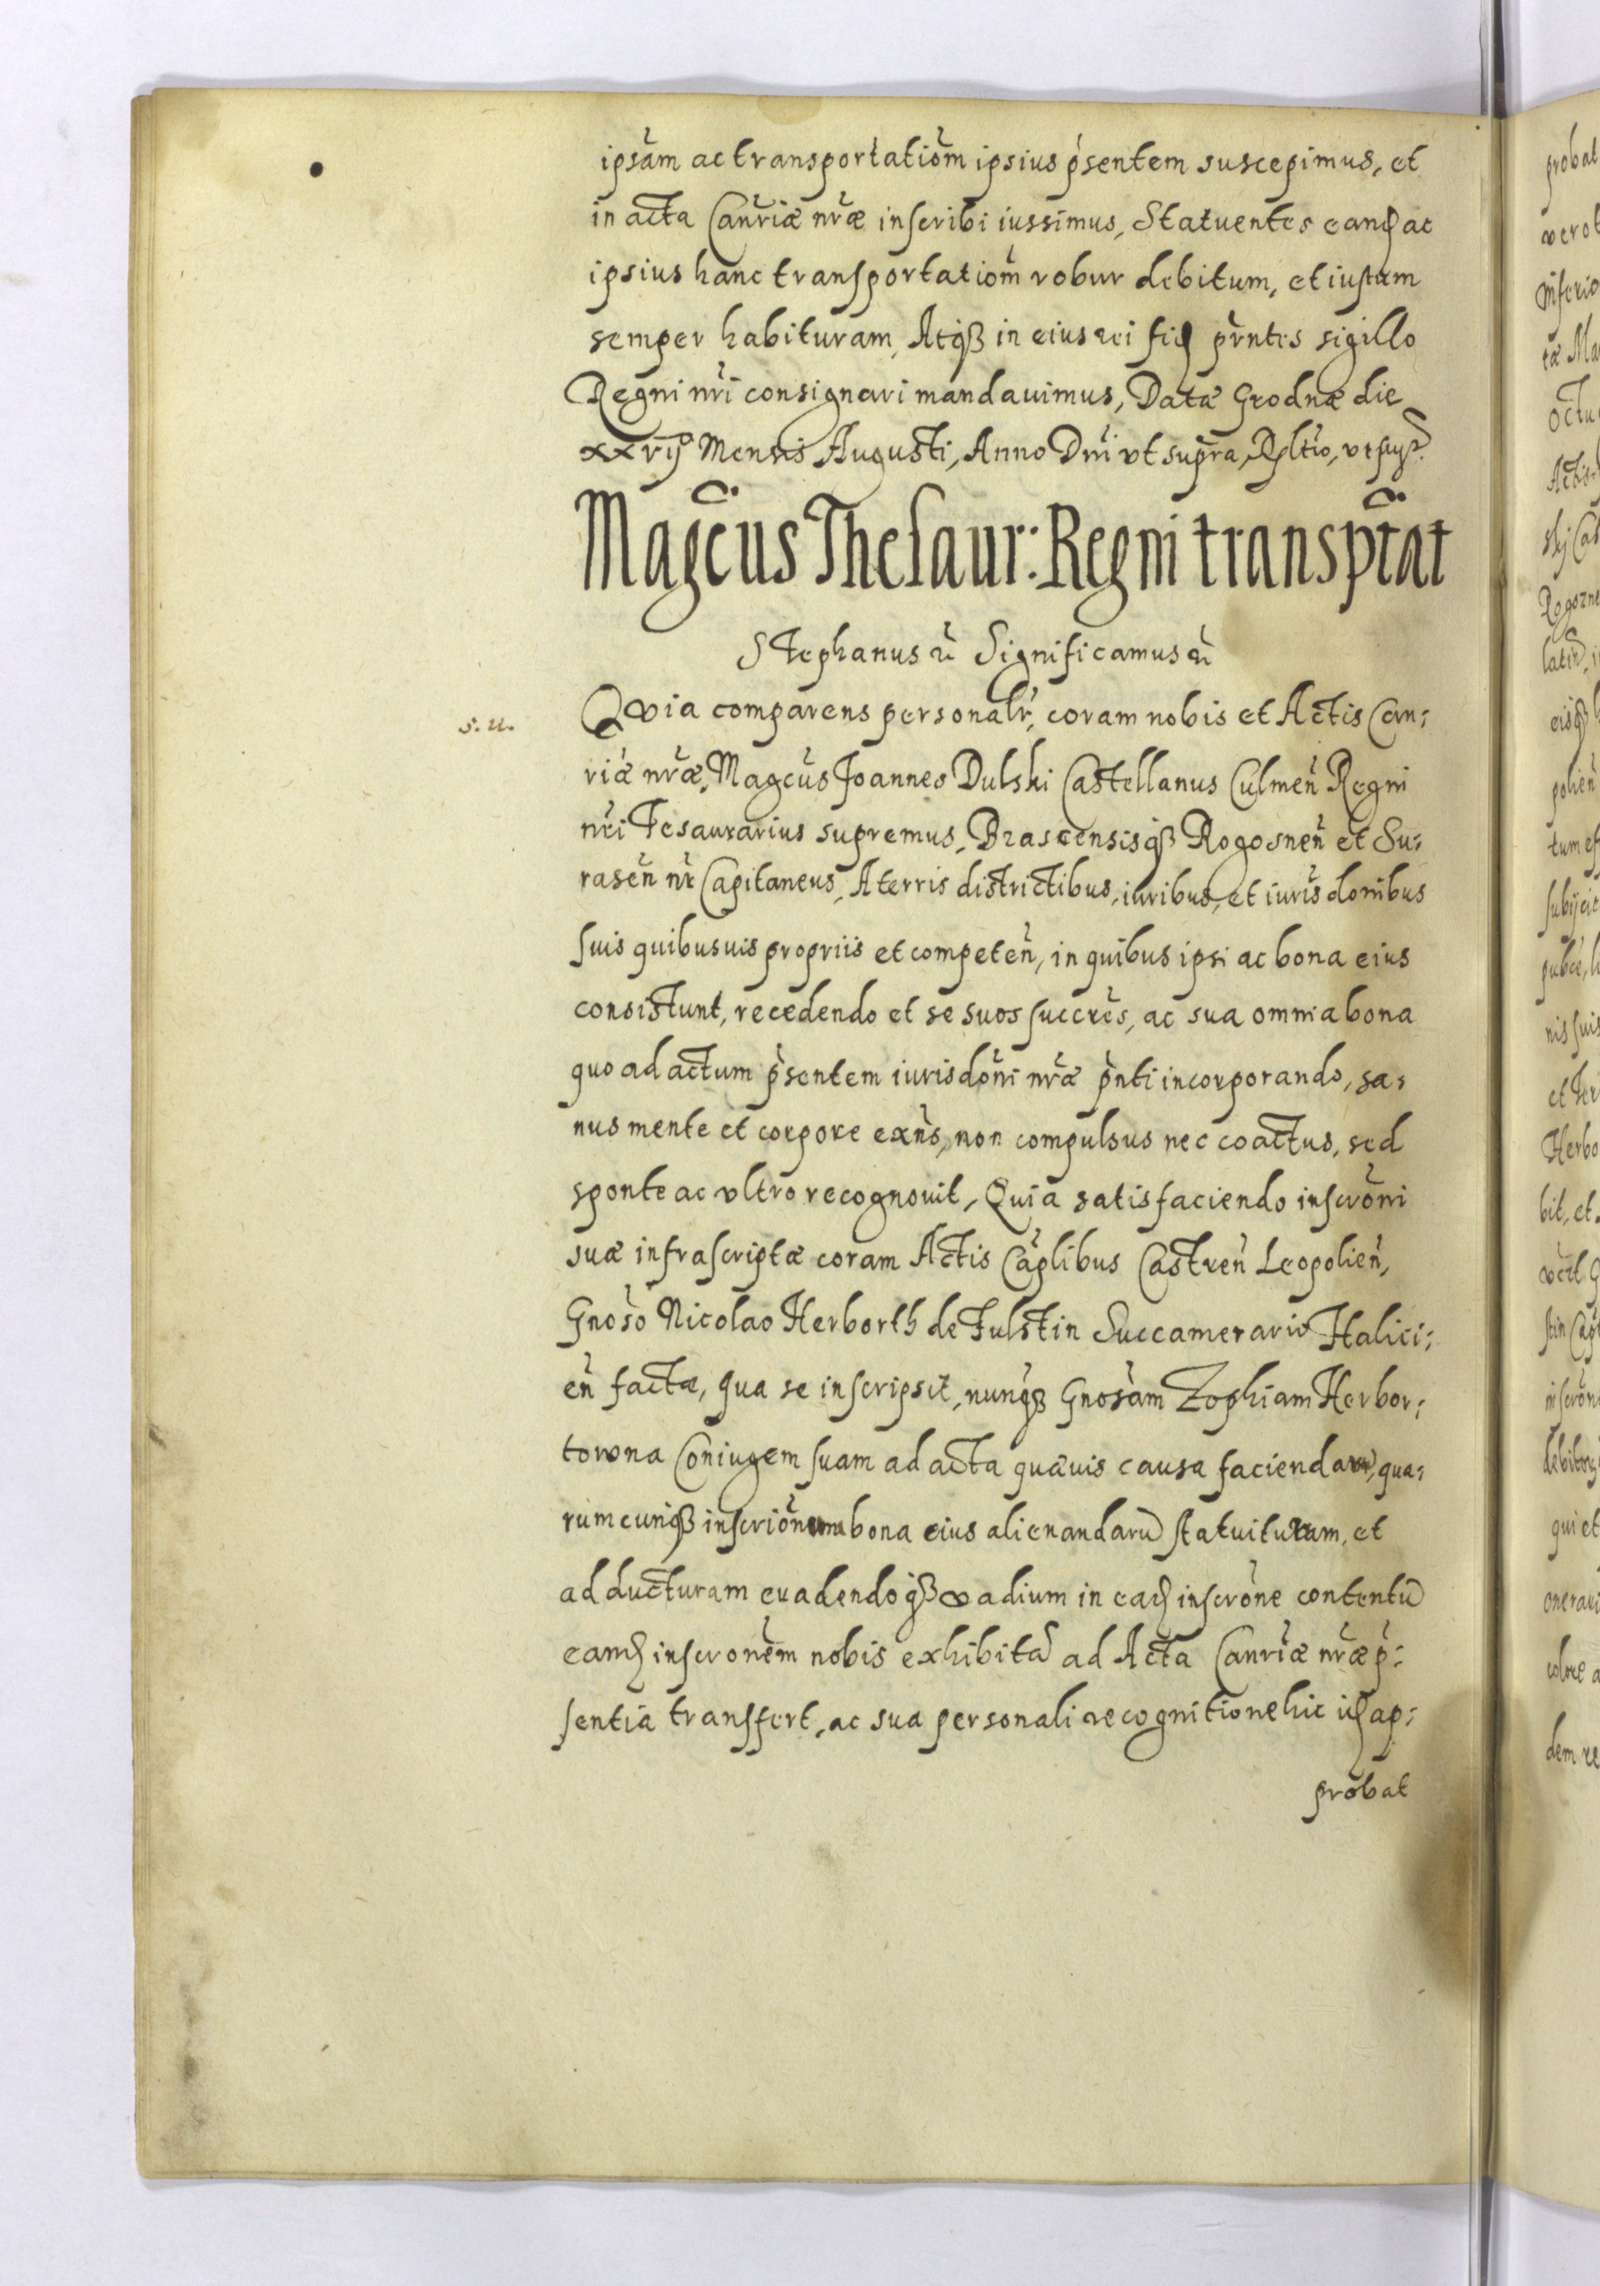 ipsam ac transportatiom ipsius psentem suscepimus, et
in acta Canriæ nræ inscribi iussimus, Statuentes eand ac
ipsius hanc transportatiom robur debitum, et iustum
semper habituram, Atq3 in eius rei fid prntes sigillo
Regni nri consignari mandauimus, Datæ Grodnæ die
xxvij Mensis Augusti, Anno Dni vt supra, Rltio, vt sup.
Magcus Thesaur: Regni transptat
Stephanus &c Significamus &c
s. u.
Qvia comparens personalr, coram nobis et Actis Can:
riæ nræ, Magcus Joannes Dulski Castellanus Culmen Regni
nri Tesaurarius supremus, Brascensisq3 Rogosnen et Su:
rasen nr Capitaneus, A terris districtibus, iuribus, et iuris donibus
suis quibusuis propriis et competen, in quibus ipsi ac bona eius
consistunt, recedendo et se suos succres, ac sua omnia bona
quo ad actum psentem iurisdoni nræ pnti incorporando, sa:
nus mente et corpore exns, non compulsus nec coactus, sed
sponte ac vltro recognouit, Quia satisfaciendo inscroni
suæ infrascriptæ coram Actis Caplibus Castren Leopolien,
Gnoso Nicolao Herborth de Fulstin Succamerario Halici:
en factæ, qua se inscripsit, nunq3 Gnosam Zophiam Herbor:
towna Coniugem suam ad acta quæuis causa faciendarum, qua:
rumcunq3 inscrionum bona eius alienandarū statuituram, et
ad ducturam euadendoq3 vadium in ead inscrone contentū
eamd inscronem nobis exhibitā ad Acta Canriæ nræ p:
sentia transfert, ac sua personali recognitione hic id ap:
probat